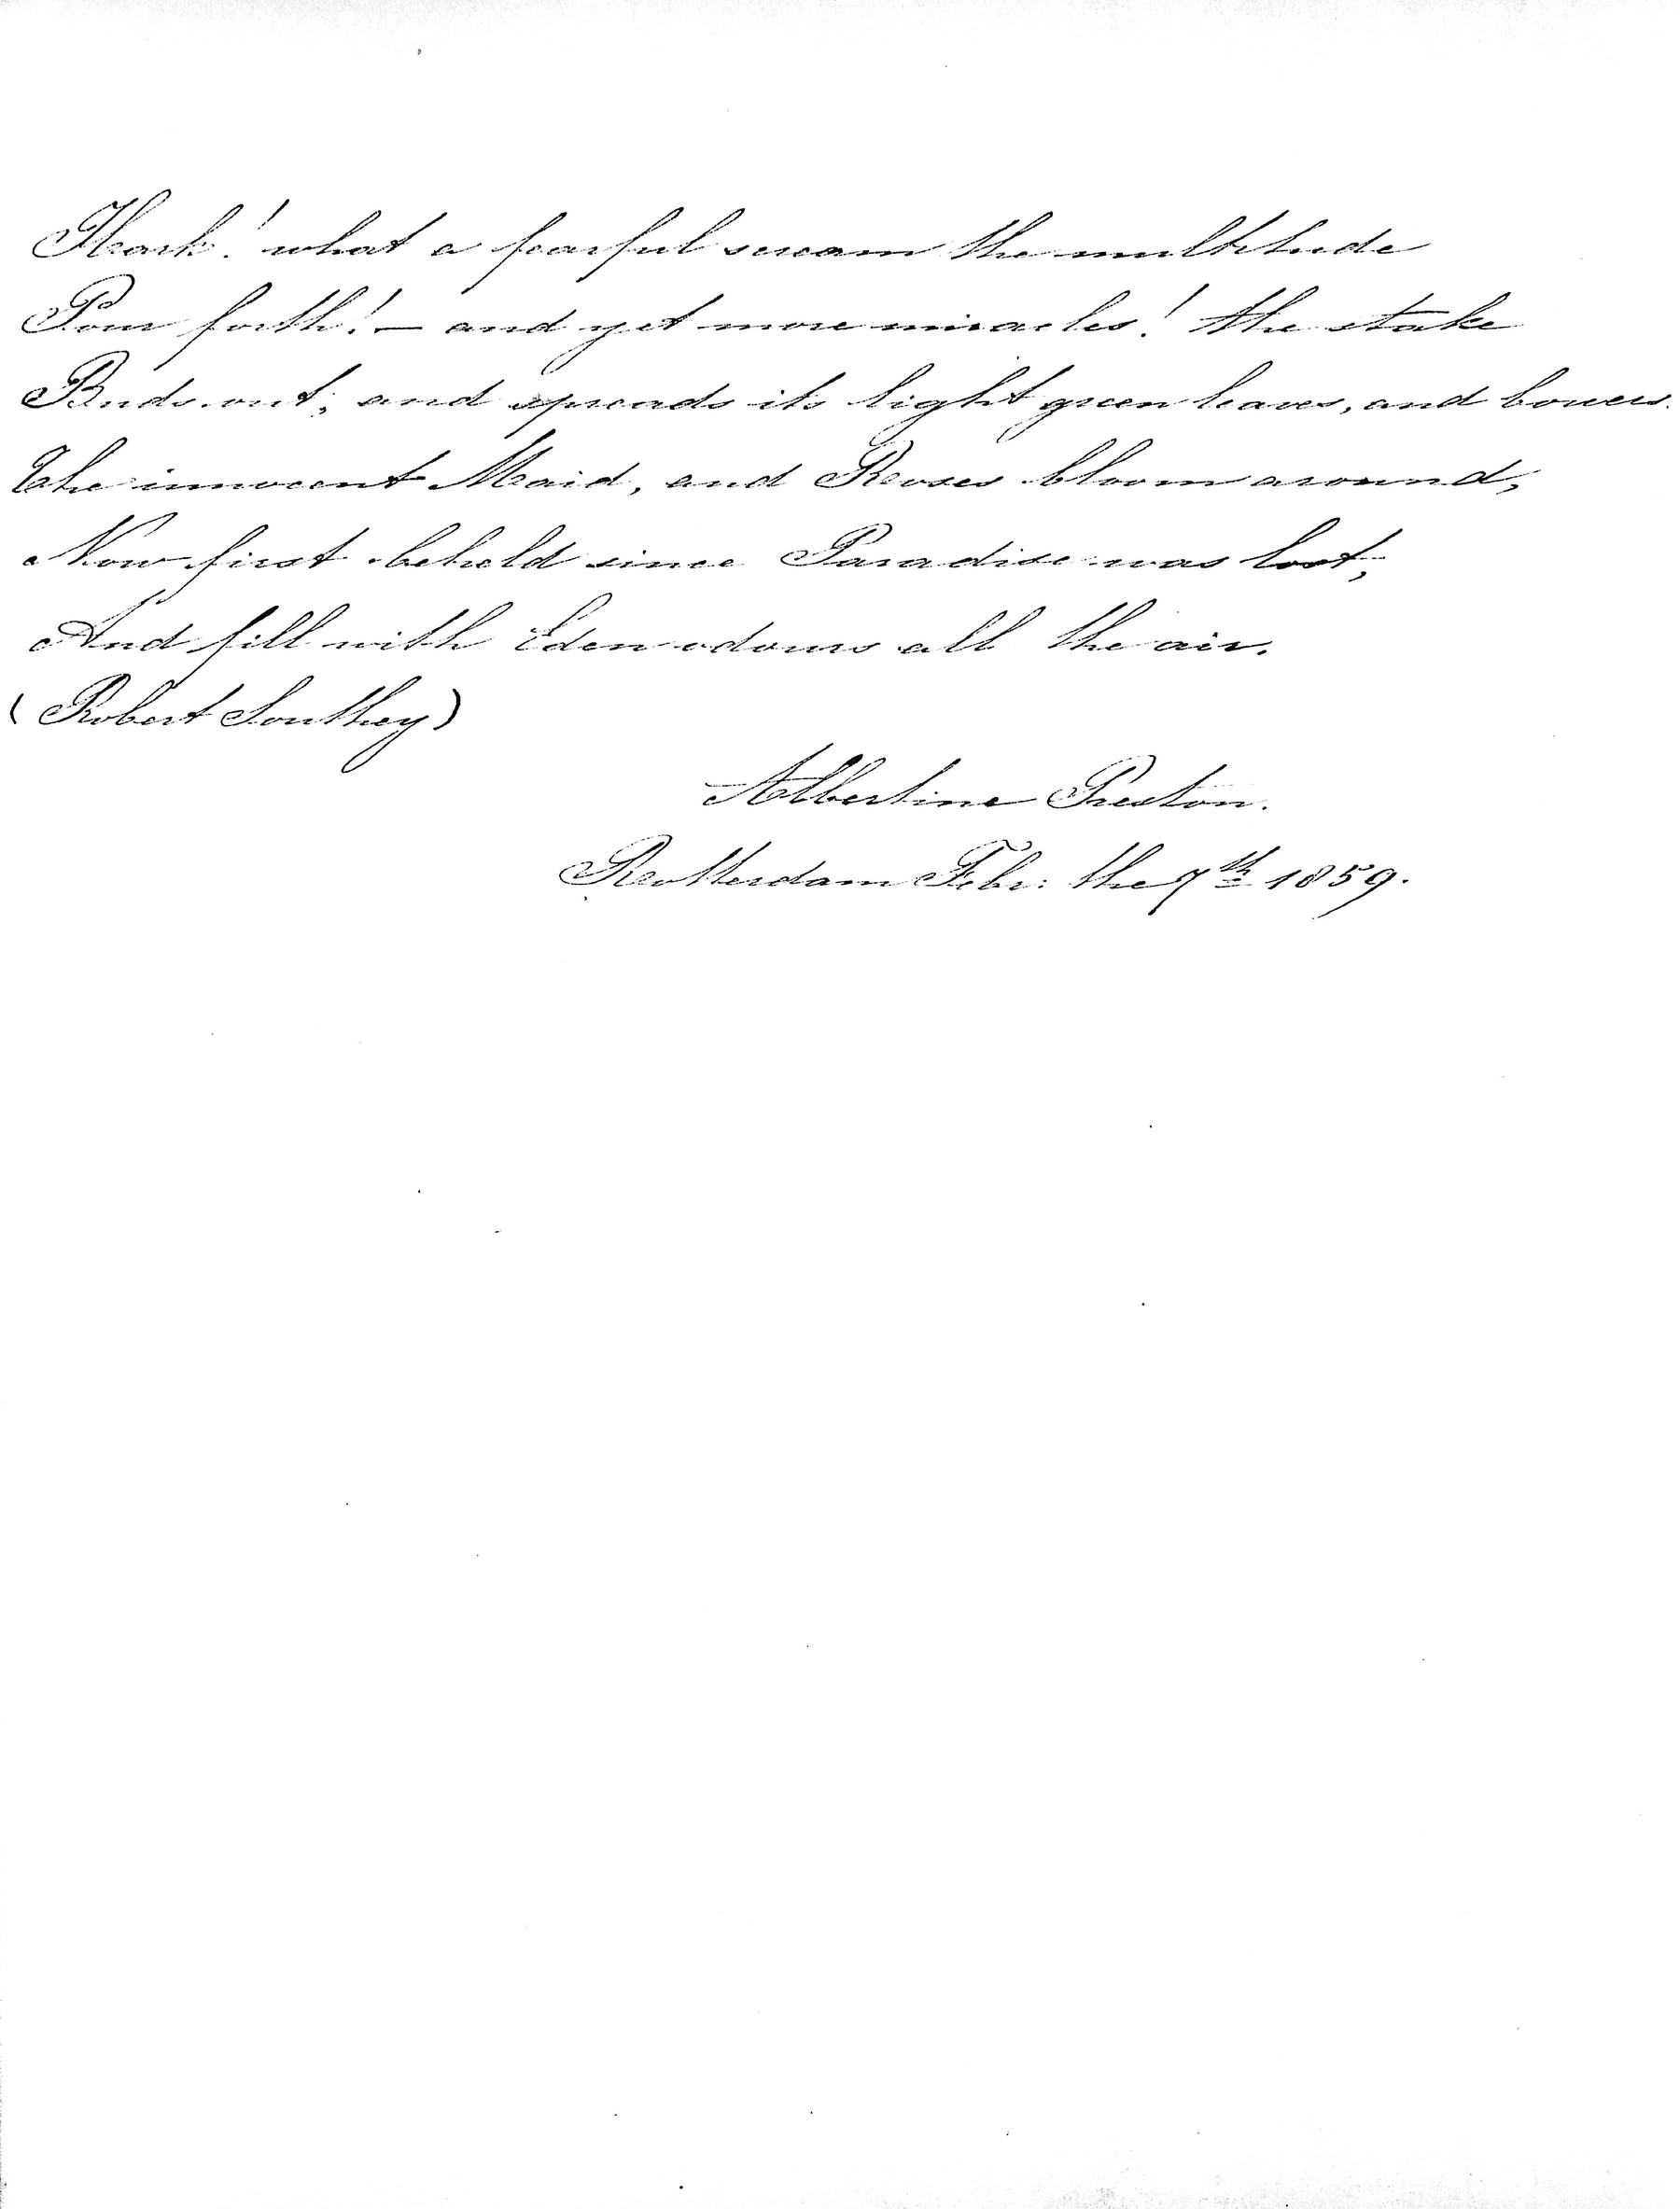 Hark! what a fearful scream the multitude
Pour forth! — and yet more miracles! the stake
Buds out; and spreads its light green leaves, and bowers
The innocent Maid, and Roses bloom around,
Now first beheld since Paradise was lost,
And fill with Eden odours all the air.
(Robert Southey)
Albertine Preston.
Rotterdam Febr: the 7th 1859.